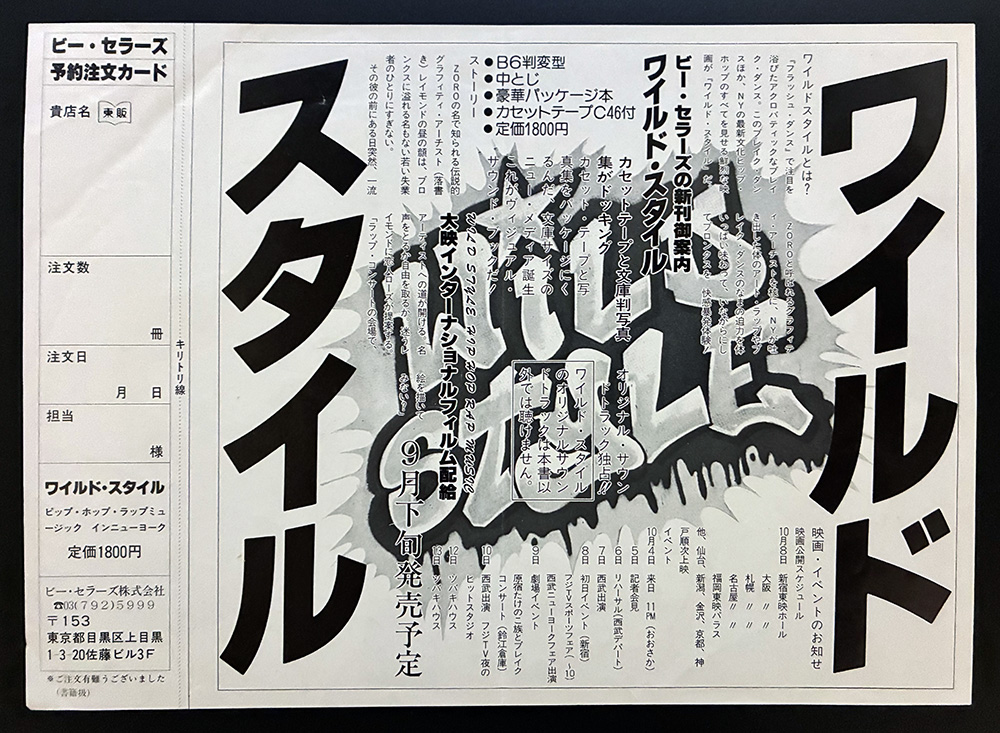 ワイルド
スタイル
ワイルドスタイルとは?
「フラッシュ・ダンス」で注目を
浴びたアクロバティックなブレイ
ク・ダンス。このブレイク・ダン
スほか、NYの最新文化ヒップ
ホップのすべてを見せる鮮烈な映
画が「ワイルド・スタイル」だ。
ZOROと呼ばれるグラフィテ
ィ・アーチストを核に、NYが吐
き出した体のアート・ラップやブ
レイク・ダンスのなまの迫力を体
いっぱい味わって、いながらにし
てブロンクスを
ビー・セラーズの新刊御案内
ワイルド・スタイル
●B6判変型
●中とじ
●豪華パッケージ本
●カセットテープC46付
●定価1800円
カセットテープと文庫判写真
集がドッキング
カセット・テープと写
真集をパッケージにく
るんだ、文庫サイズの
ニュー・メディア誕生
これがヴィジュアル・
サウンド・ブックだ!!
オリジナル・サウン
ドトラック独占!!
ワイルド・スタイル
のオリジナルサウン
ドトラックは本書以
外では聴けません。
ストーリー
ZOROの名で知られる伝説的
グラフィティ・アーチスト(落書
き)レイモンドの昼の顔は、ブロ
ンクスに溢れる名もない若い失業
者のひとりにすぎない。
その彼の前にある日突然、一流
アーティストへの道が開ける。名
声をとるか自由を取るか。迷うレ
イモンドに恋人ローズが提案する。
「ラップ・コンサートの会場で、
絵を描いて
みない?」
WILD STYLE HIP HOP RAP MUSIC
大映インターナショナルフィルム配給
9月下旬発売予定
映画・イベントのお知せ
映画公開スケジュール
10月8日 新宿東映ホール
大阪 〃 〃
札幌 〃 〃
名古屋 〃 〃
福岡東映パラス
他、仙台、新潟、金沢、京都、神
戸順次上映
イベント
10月4日 来日 11PM(おおさか)
5日 記者会見
6日 リハーサル(西武デパート)
7日 西武出演
8日 初日イベント(新宿)
フジTVスポーツフェア(〜10)
西武ニューヨークフェア出演
9日 劇場イベント
原宿たけのこ族とブレイク
コンサート(鈴江倉庫)
10日 西武出演 フジTV夜の
ヒットスタジオ
12日 ツバキハウス
13日 ツバキハウス
キリトリ線
ビー・セラーズ
予約注文カード
貴店名 東販
注文数
冊
注文日
月 日
担当
様
ワイルド・スタイル
ピップ・ホップ・ラップミュ
ージック インニューヨーク
定価1800円
ビー・セラーズ株式会社
☎03(792)5999
〒153
東京都目黒区上目黒
1-3-20佐藤ビル3F
※ご注文有難うございました
(書籍扱)
WILD
STYLE